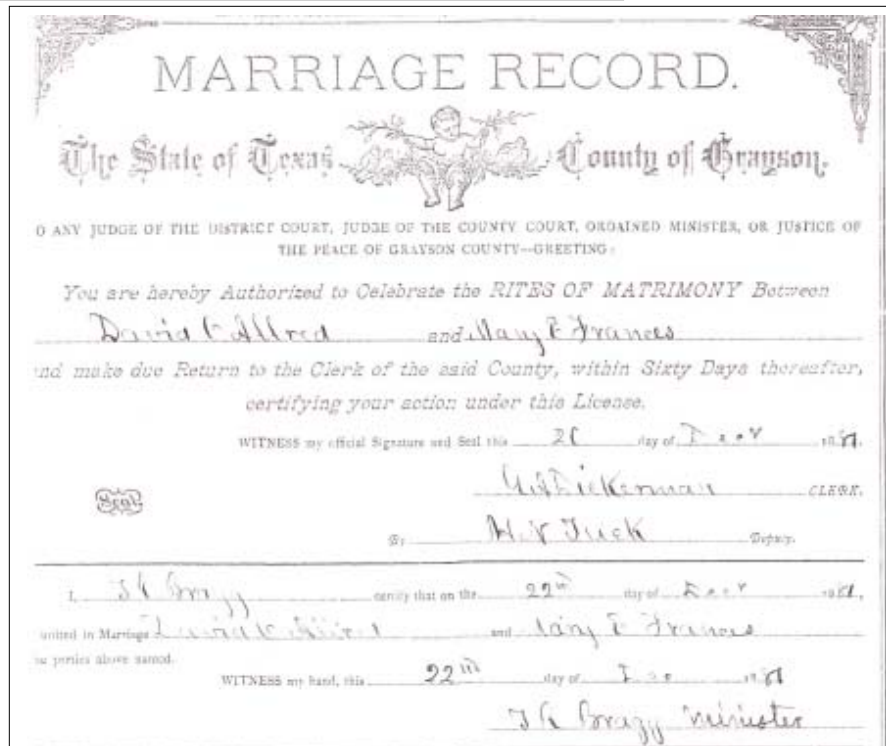 MARRIAGE RECORD.
The State of Texas County of Grayson.
O ANY JUDGE OF THE DISTRICT COURT, JUDGE OF THE COUNTY COURT, ORDAINED MINISTER, OR JUSTICE OF
THE PEACE OF GRAYSON COUNTY—GREETING:
You are hereby Authorized to Celebrate the RITES OF MATRIMONY Between
David C Allred and Mary E Frances
nd make due Return to the Clerk of the said County, within Sixty Days thereafter,
certifying your action under this License.
WITNESS my official Signature and Seal this day of
Dickerman CLERK.
Seal
By H. V Tuck Deputy.
I, Bragg certify that on the 22nd day of
united in Marriage David C Allred and Mary E Frances
parties above named.
WITNESS my hand, this 22nd day of
Bragg Minister